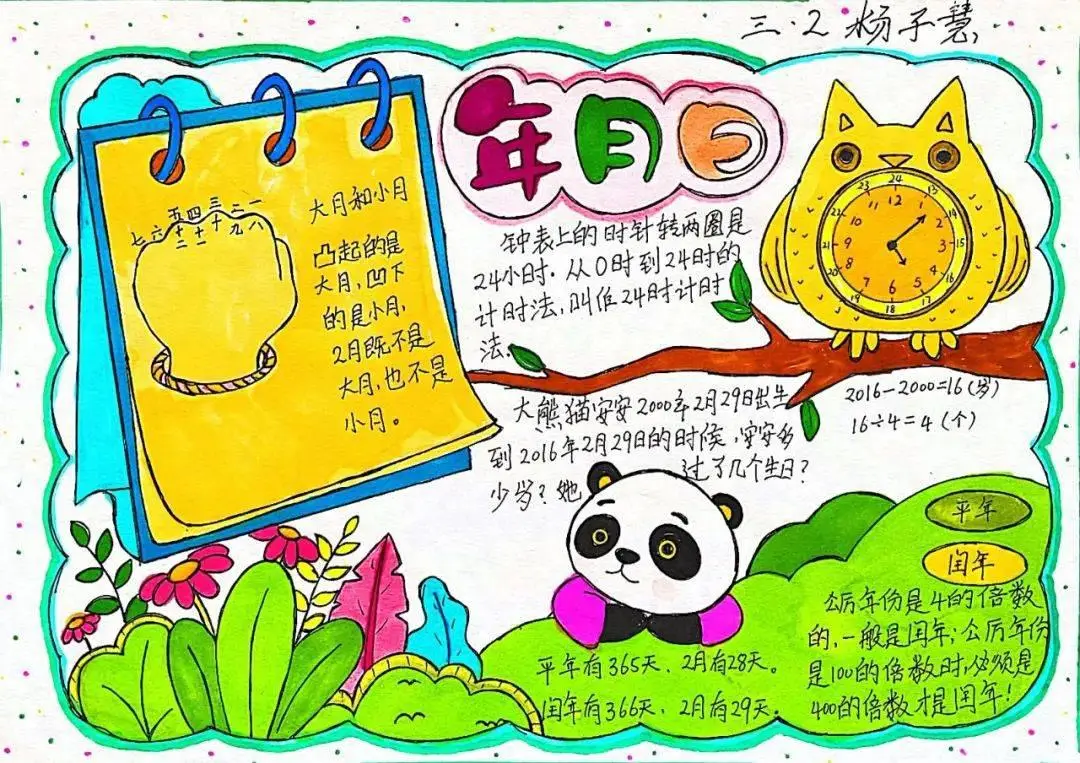 三.2 杨子慧
年月日
大月和小月
凸起的是
大月,凹下
的是小月,
2月既不是
大月,也不是
小月。
七 六 五 四 三 二 一
十二 十一 十 九 八
钟表上的时针转两圈是
24小时.从0时到24时的
计时法,叫作24时计时
法.
24 13 15 16 17 18 19 20 21 22 23
12 1 2 3 4 5 6 7 8 9 10 11
大熊猫安安2000年2月29日出生
到2016年2月29日的时候,安安多
少岁?她过了几个生日?
2016-2000=16(岁)
16÷4=4(个)
平年
闰年
公历年份是4的倍数
的,一般是闰年;公历年份
是100的倍数时,必须是
400的倍数才是闰年!
平年有365天、2月有28天。
闰年有366天、2月有29天。